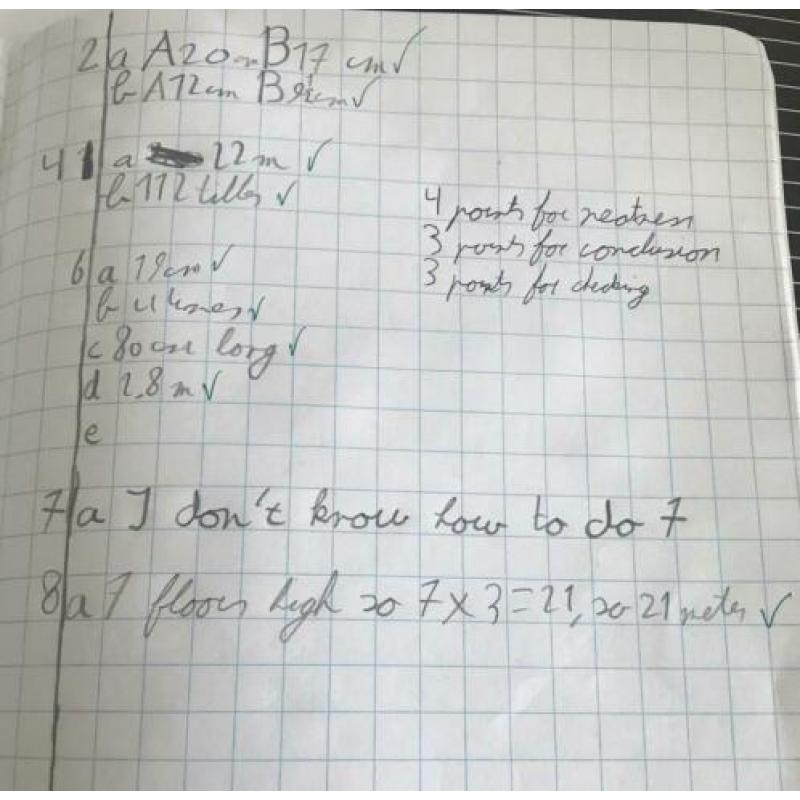 2 a A 20 cm B 17 cm ✓
b A 12 cm B cm ✓
4 a 22 m ✓
b 112 ✓
6 a 19 cm ✓
b 4 ✓
c 80 cm long ✓
d 2.8 m ✓
e
4 points for neatness
3 points for conclusion
3 points for checking
7 a I don't know how to do 7
8 a 7 floors high so 7 x 3 = 21, so 21 meter ✓